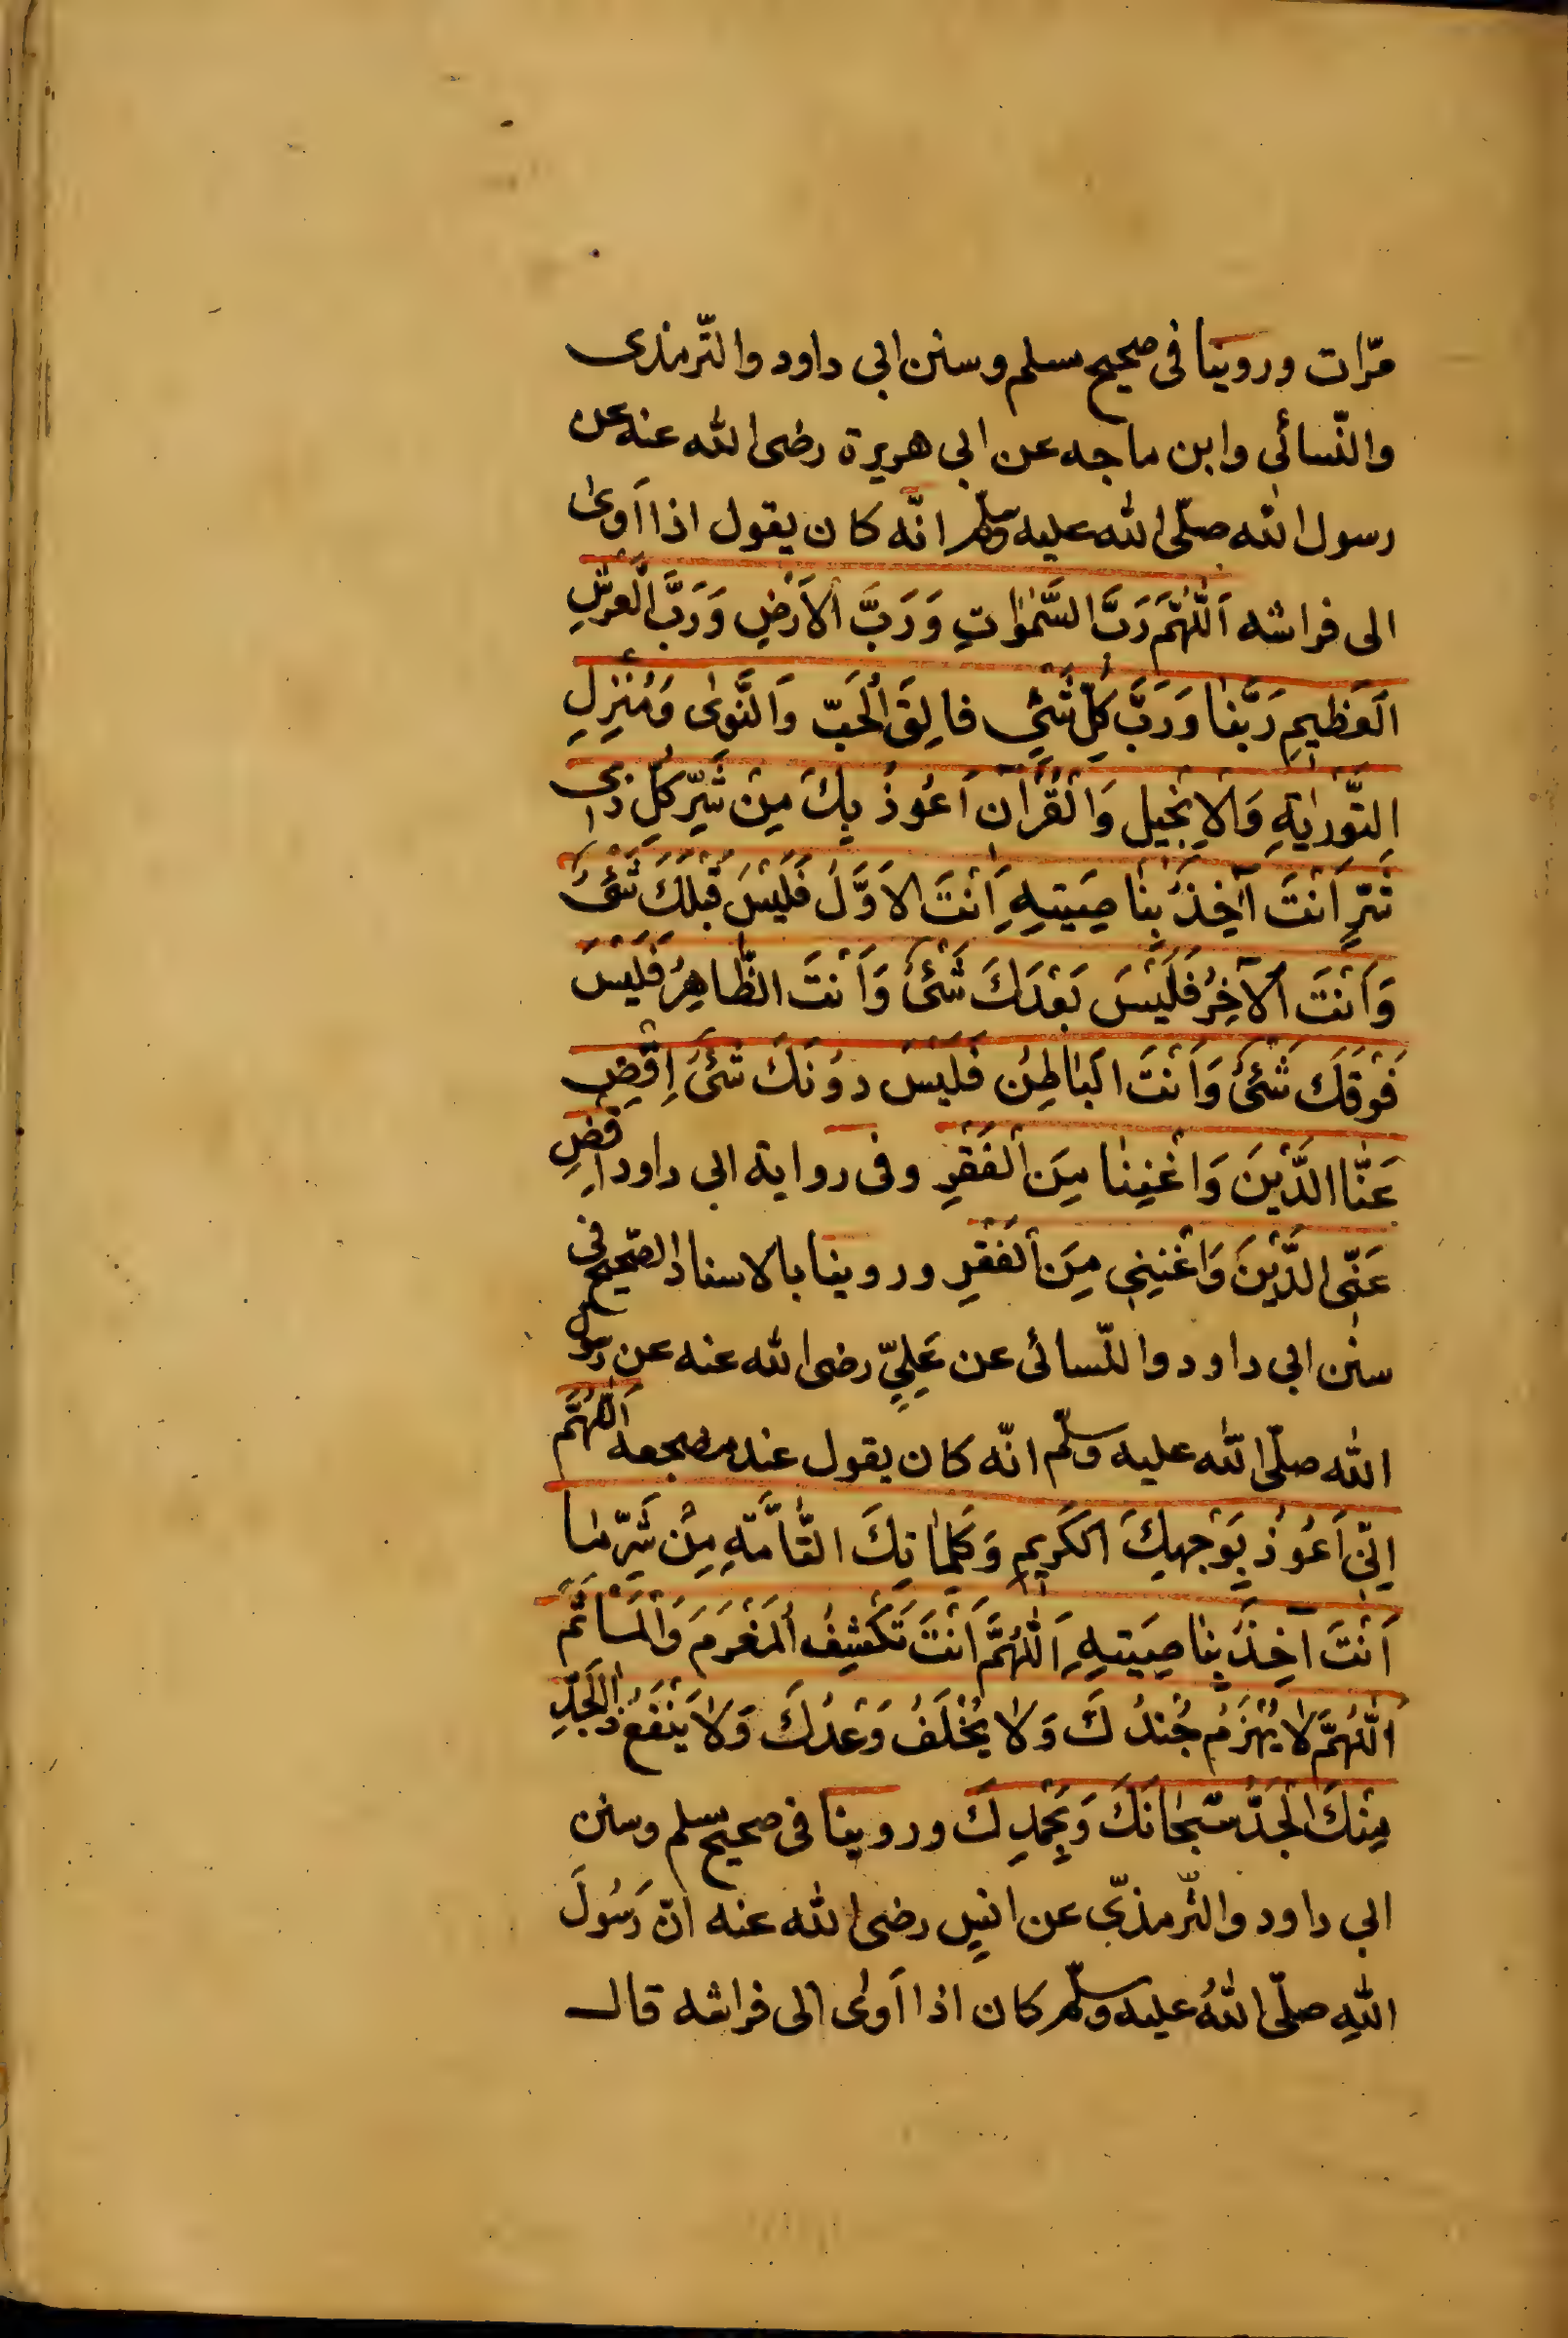 مرّات وروينا فى صحيح مسلم وسنن ابى داود والتّرمذى
والنّسائى وابن ماجه عن ابى هريرة رضى الله عنه عن
رسول الله صلّى الله عليه وسلّم انّه كان يقول اذا اَوىٰ
الى فراشه اَللّٰهُمَّ رَبَّ السَّمٰوٰاتِ وَرَبَّ الْاَرْضِ وَرَبَّ الْعَرْشِ
الْعَظِيمِ رَبَّنٰا وَرَبَّ كُلِّ شَىْءٍ فالِقَ الْحَبِّ وَالنَّوىٰ وَمُنْزِلِ
التَّوْرٰيةِ وَالْاِنْجيل وَالْقُرْآنِ اَعُوذُ بِكَ مِنْ شَرِّ كُلِّ ذى
شَرٍّ اَنْتَ آخِذٌ بِنٰاصِيَتِهِ اَنْتَ الْاَوَّلُ فَلَيْسَ قَبْلَكَ شَىْءٌ
وَاَنْتَ الْآخِرُ فَلَيْسَ بَعْدَكَ شَىْءٌ وَاَنْتَ الظّٰاهِرُ فَلَيْسَ
فَوْقَكَ شَىْءٌ وَاَنْتَ الْبٰاطِنُ فَلَيْسَ دوُنَكَ شَىْءٌ اِقْضِ
عَنّٰا الدَّيْنَ وَاَغْنِنٰا مِنَ الْفَقْرِ وفى رواية ابى داود اِقْضِ
عَنّى الدَّيْنَ وَاَغْنِنِى مِنَ الْفَقْرِ وروينا بالاسناد الصّحيح فى
سنن ابى داود والنّسائى عن عَلِىٍّ رضى الله عنه عن رسول
الله صلّى الله عليه وسلّم انّه كان يقول عند مضجعه اَللّٰهُمَّ
اِنّى اَعُوذُ بِوَجْهِكَ الْكَرِيمِ وَكَلِمٰاتِكَ التّٰامَّةِ مِنْ شَرِّ مٰا
اَنْتَ آخِذٌ بِنٰاصِيَتِهِ اَللّٰهُمَّ اَنْتَ تَكْشِفُ الْمَغْرَمَ وَالْمَأْثَمَ
اَللّٰهُمَّ لٰا يُهْزَمُ جُنْدُكَ وَلٰا يُخْلَفُ وَعْدُكَ وَلٰا يَنْفَعُ ذَا الْجَدِّ
مِنْكَ الْجَدُّ سُبْحٰانَكَ وَبِحَمْدِكَ وروينا فى صحيح مسلم وسنن
ابى داود والتّرمذىّ عن انسٍ رضى الله عنه انّ رَسُولَ
اللهِ صلّى اللهُ عليه وسلّم كان اذا اَوىٰ الى فراشه قال